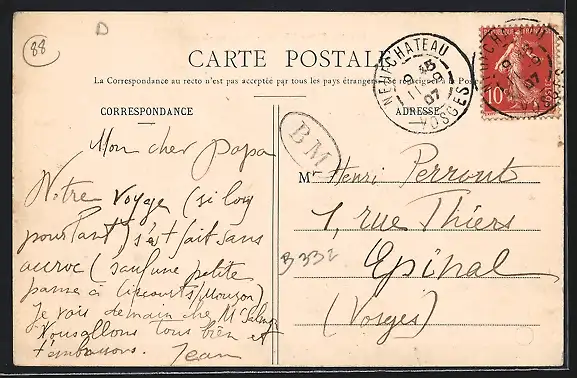 88
D
CARTE POSTALE
La Correspondance au recto n'est pas acceptée par tous les pays étrangers se renseigner à la Poste
CORRESPONDANCE
ADRESSE
NEUFCHATEAU
11 9
07
VOSGES
10
BM
Mon cher papa
Notre voyage (si long
pourtant) s'est fait sans
accroc (sauf une petite
panne à Circourt s/Mouzon)
Je vais demain chez Mr
Nous allons tous bien et
t'embrassons. Jean
Mr Henri Perrout
1, rue Thiers
Epinal
(Vosges)
B332